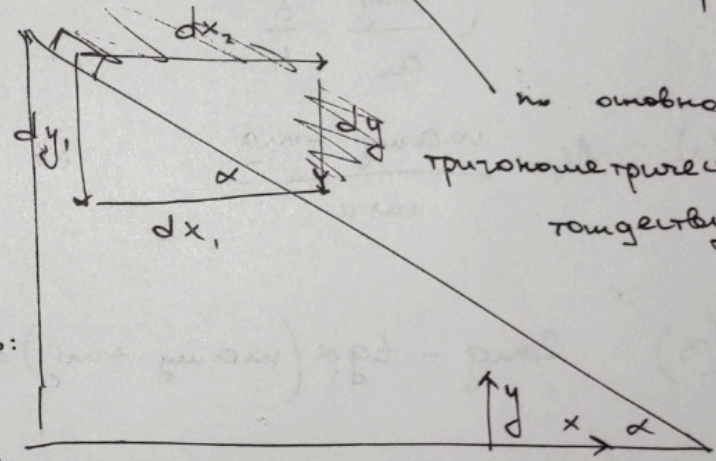 dx₂
dy₁
dy
по основно
тригонометричес
тождеству
α
dx₁
:
y
x
α